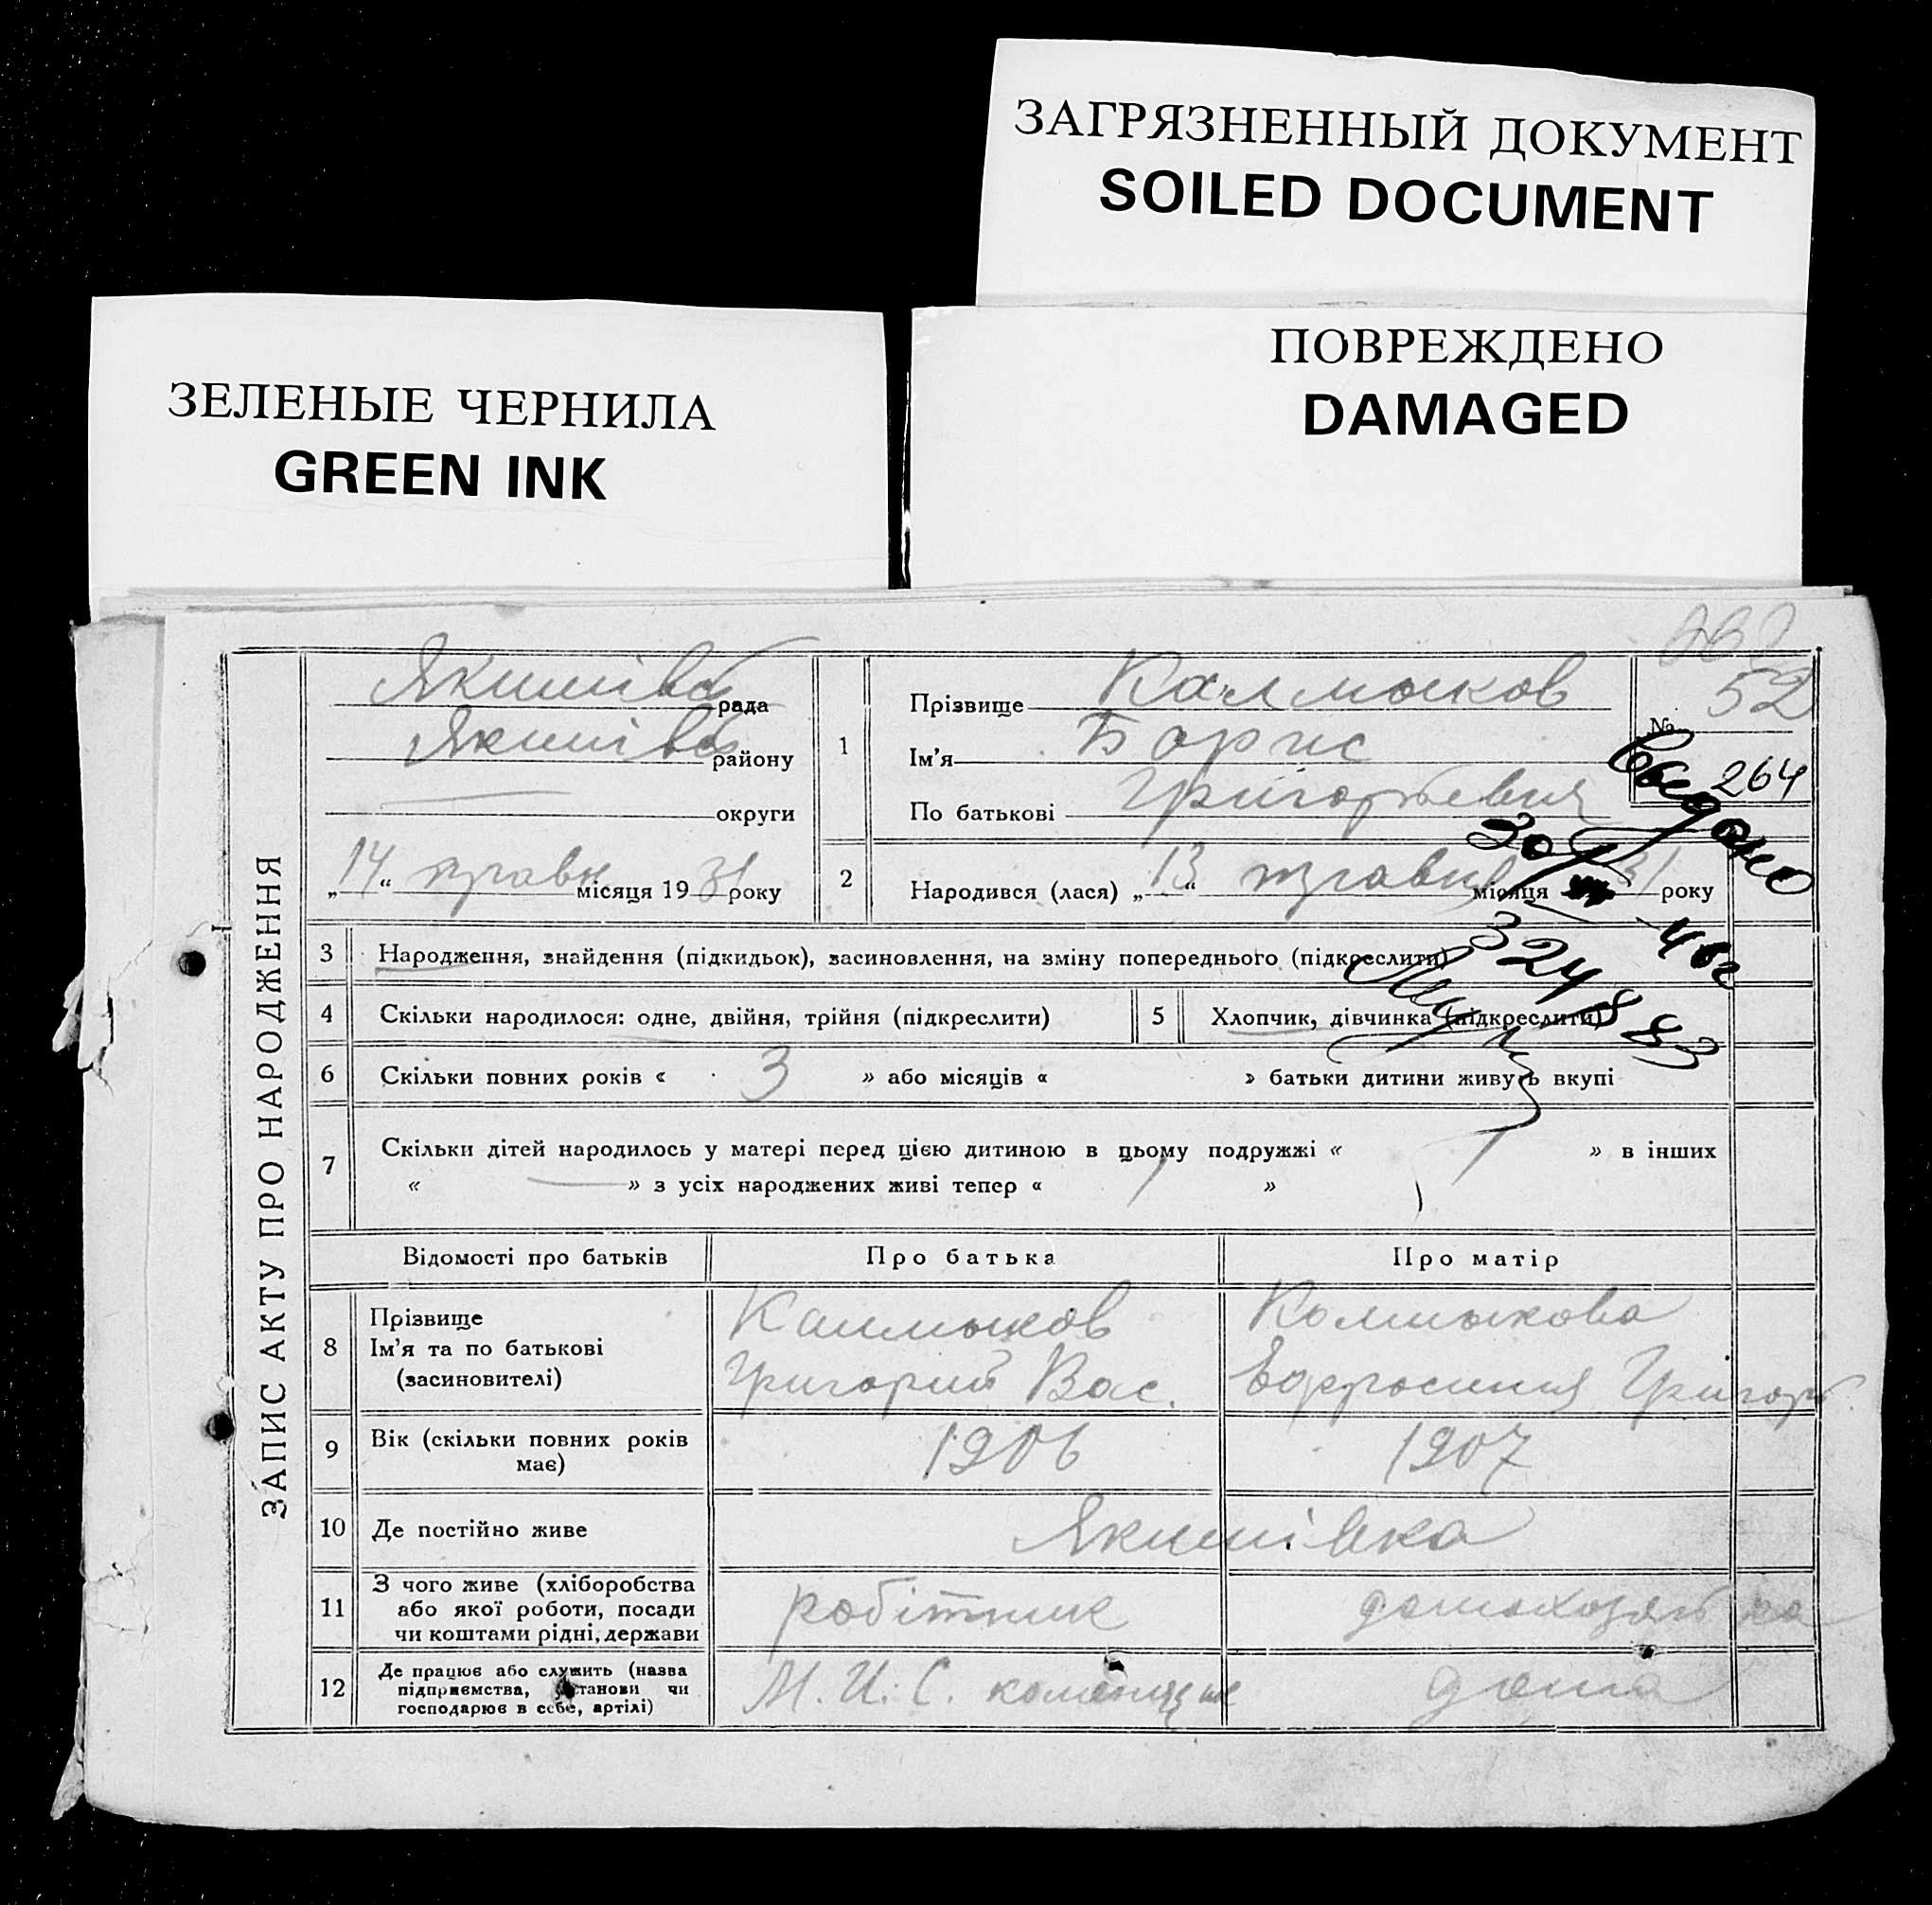 ЗАГРЯЗНЕННЫЙ ДОКУМЕНТ
SOILED DOCUMENT
ПОВРЕЖДЕНО
DAMAGED
ЗЕЛЕНЫЕ ЧЕРНИЛА
GREEN INK
ЗАПИС АКТУ ПРО НАРОДЖЕННЯ
Якимівс рада
Якимівс району
округи
„14“ травн місяця 1931 року
1
Прізвище Калмыков
Ім'я Борис
По батькові Григорьевич
№ 52
264
Выдано
30/
46г
324883
2
Народився (лася) „13“ травня місяця 31 року
3 Народження, знайдення (підкидьок), засиновлення, на зміну попереднього (підкреслити)
4 Скільки народилося: одне, двійня, трійня (підкреслити)
5 Хлопчик, дівчинка (підкреслити)
6 Скільки повних років « 3 » або місяців « » батьки дитини живуть вкупі
7 Скільки дітей народилось у матері перед цією дитиною в цьому подружжі « 1 » в інших
« — » з усіх народжених живі тепер « 1 »
Відомості про батьків Про батька Про матір
8 Прізвище
Ім'я та по батькові
(засиновителі)
Калмыков
Григорий Вас.
Колмыкова
Евфросиния Григорь
9 Вік (скільки повних років
має)
1906 1907
10 Де постійно живе Якимівка
11 З чого живе (хліборобства
або якої роботи, посади
чи коштами рідні, держави
робітник домохозяйка
12 Де працює або служить (назва
підприємства, установи чи
господарює в себе, артілі)
М. И. С. дома